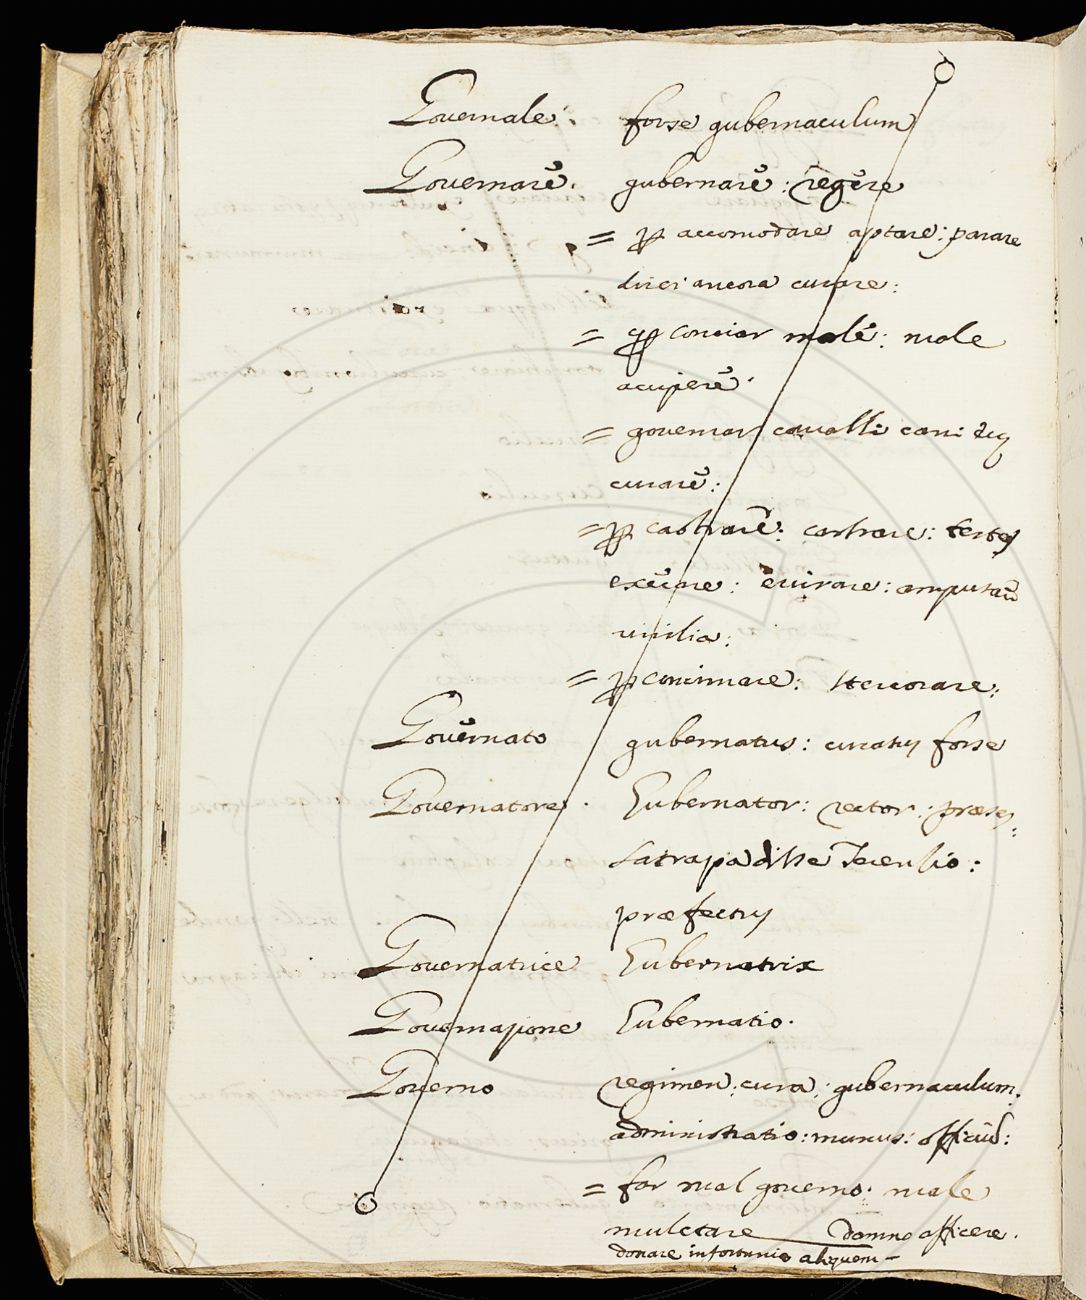 Governale. forse gubernaculum
Governare. gubernare: regere
= p accomodare aptare: parare
dicesi ancora curare:
= p conciar male: male
accipere.
= governar cavalli cani
curare:
= p castrare: castrare: testes
execare: evirare: amputare
virilia:
= p concimare: stercorare:
Governato gubernatus: curatus forse
Governatore. Gubernator: rector: præses:
Satrapa disse Terentio:
præfectus
Governatrice Gubernatrix
Governazione Gubernatio.
Governo regimen: cura: gubernaculum.
administratio: munus: officiũ:
= far mal governo: male
mulctare damno afficere.
donare infortunio aliquem -